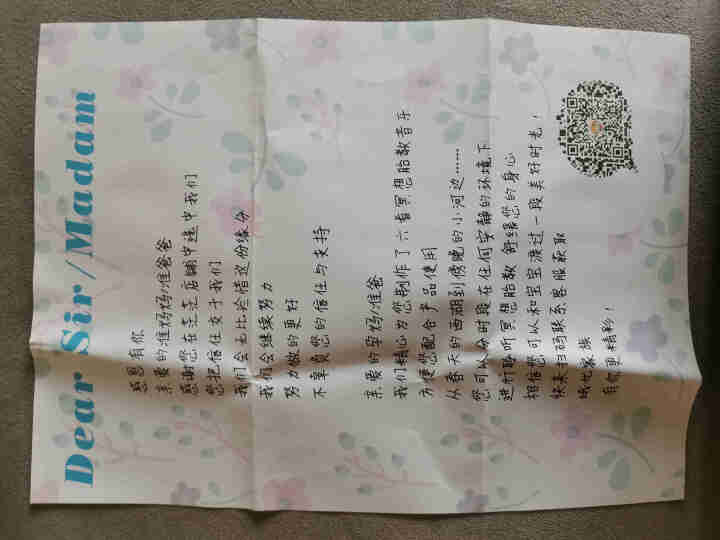 Dear Sir/Madam
感恩有你
亲爱的准妈妈/准爸爸
感谢您在茫茫店铺中选中我们
您把信任交于我们
我们会无比珍惜这份缘分
我们会继续努力
努力做的更好
不辜负您的信任与支持
亲爱的孕妈/准爸
我们精心为您制作了六首冥想胎教音乐
方便您配合产品使用
从春天的西湖到傍晚的小河边……
您可以分时段在任何安静的环境下
进行聆听冥想胎教 舒缓您的身心
相信您可以和宝宝渡过一段美好时光！
快来扫码联系客服获取
家族
有你更精彩！